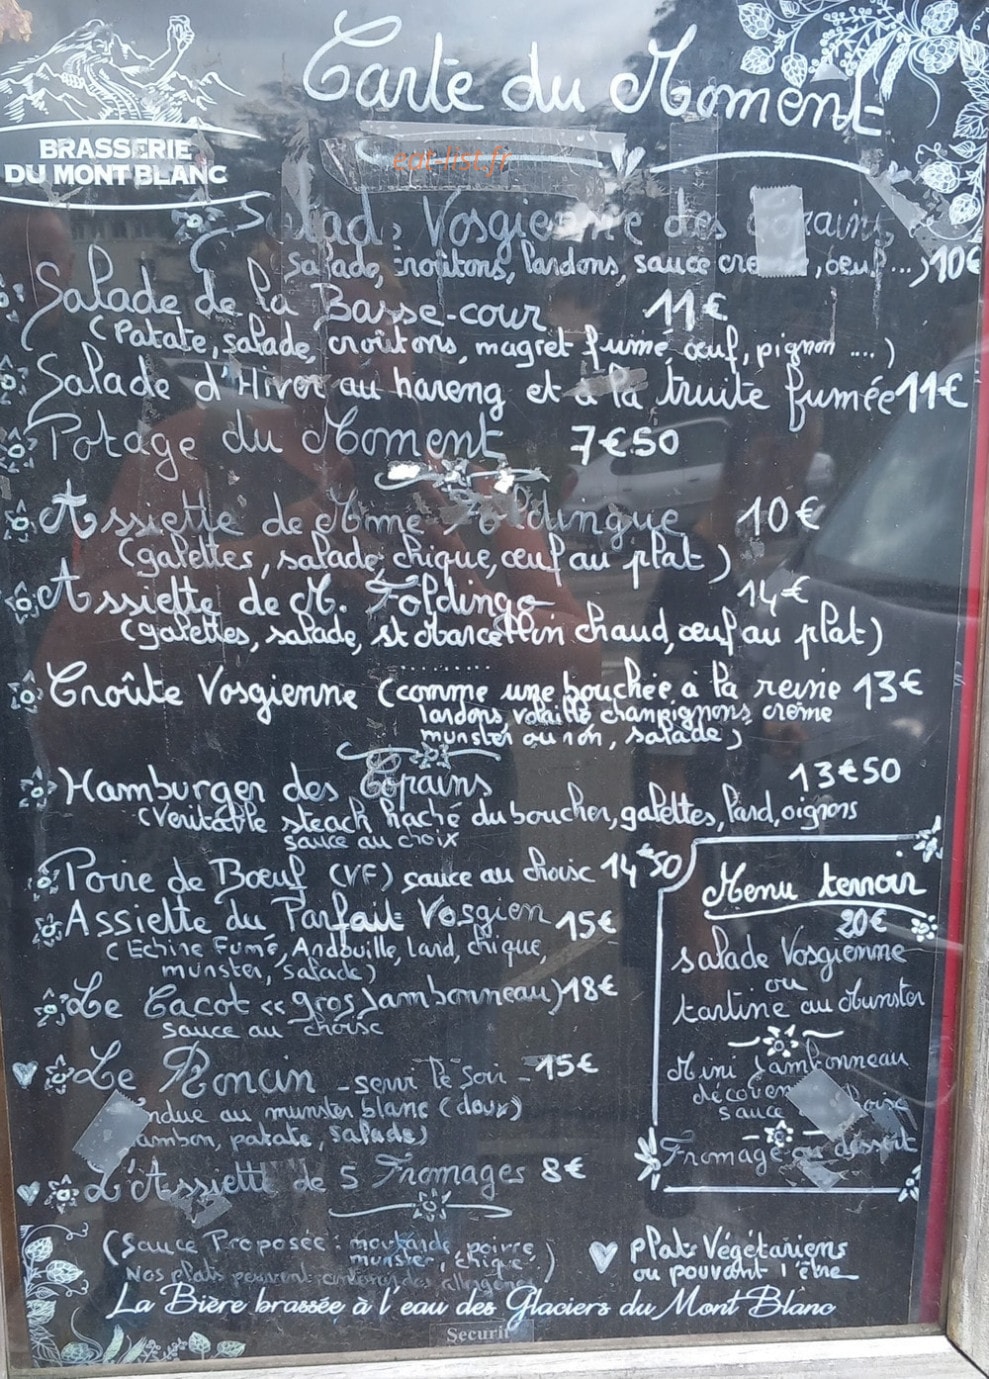 Carte du Moment
BRASSERIE
DU MONT BLANC
eat-list.fr
Salade Vosgienne des Copains
Salade, croûtons, lardons, sauce , oeuf...) 10€
Salade de la Basse-cour 11€
(Patate, salade, croûtons, magret fumé, œuf, pignon ....)
Salade d'Hiver au hareng et à la truite fumée 11€
Potage du Moment 7€50
Assiette de Mme Foldingue 10€
(galettes, salade, chique, œuf au plat)
Assiette de M. Foldingo 14€
(galettes, salade, st Marcellin chaud, œuf au plat)
Croûte Vosgienne (comme une bouchée à la reine 13€
lardons, volaille, champignons, crème
munster ou non, salade)
Hamburger des Copains 13€50
(Véritable steack haché du boucher, galettes, lard, oignons
sauce au choix
Poire de Bœuf (VF) sauce au choix 14€50
Assiette du Parfait Vosgien 15€
(Echine Fumé, Andouille, lard, chique,
munster, salade)
Le Cacot «gros Jambonneau) 18€
sauce au choix
Le Roncin - servi le soir - 15€
ndue au munster blanc (doux)
ambon, patate, salade)
L'Assiette de 5 Fromages 8€
Menu terroir
20€
salade Vosgienne
ou
tartine au Munster
Mini Jambonneau
sauce
Fromage ou dessert
(Sauce Proposée : moutarde, poivre,
munster, chique.)
Nos plats peuvent des allergènes
plats Végétariens
ou pouvant l'être
La Bière brassée à l'eau des Glaciers du Mont Blanc
Securit